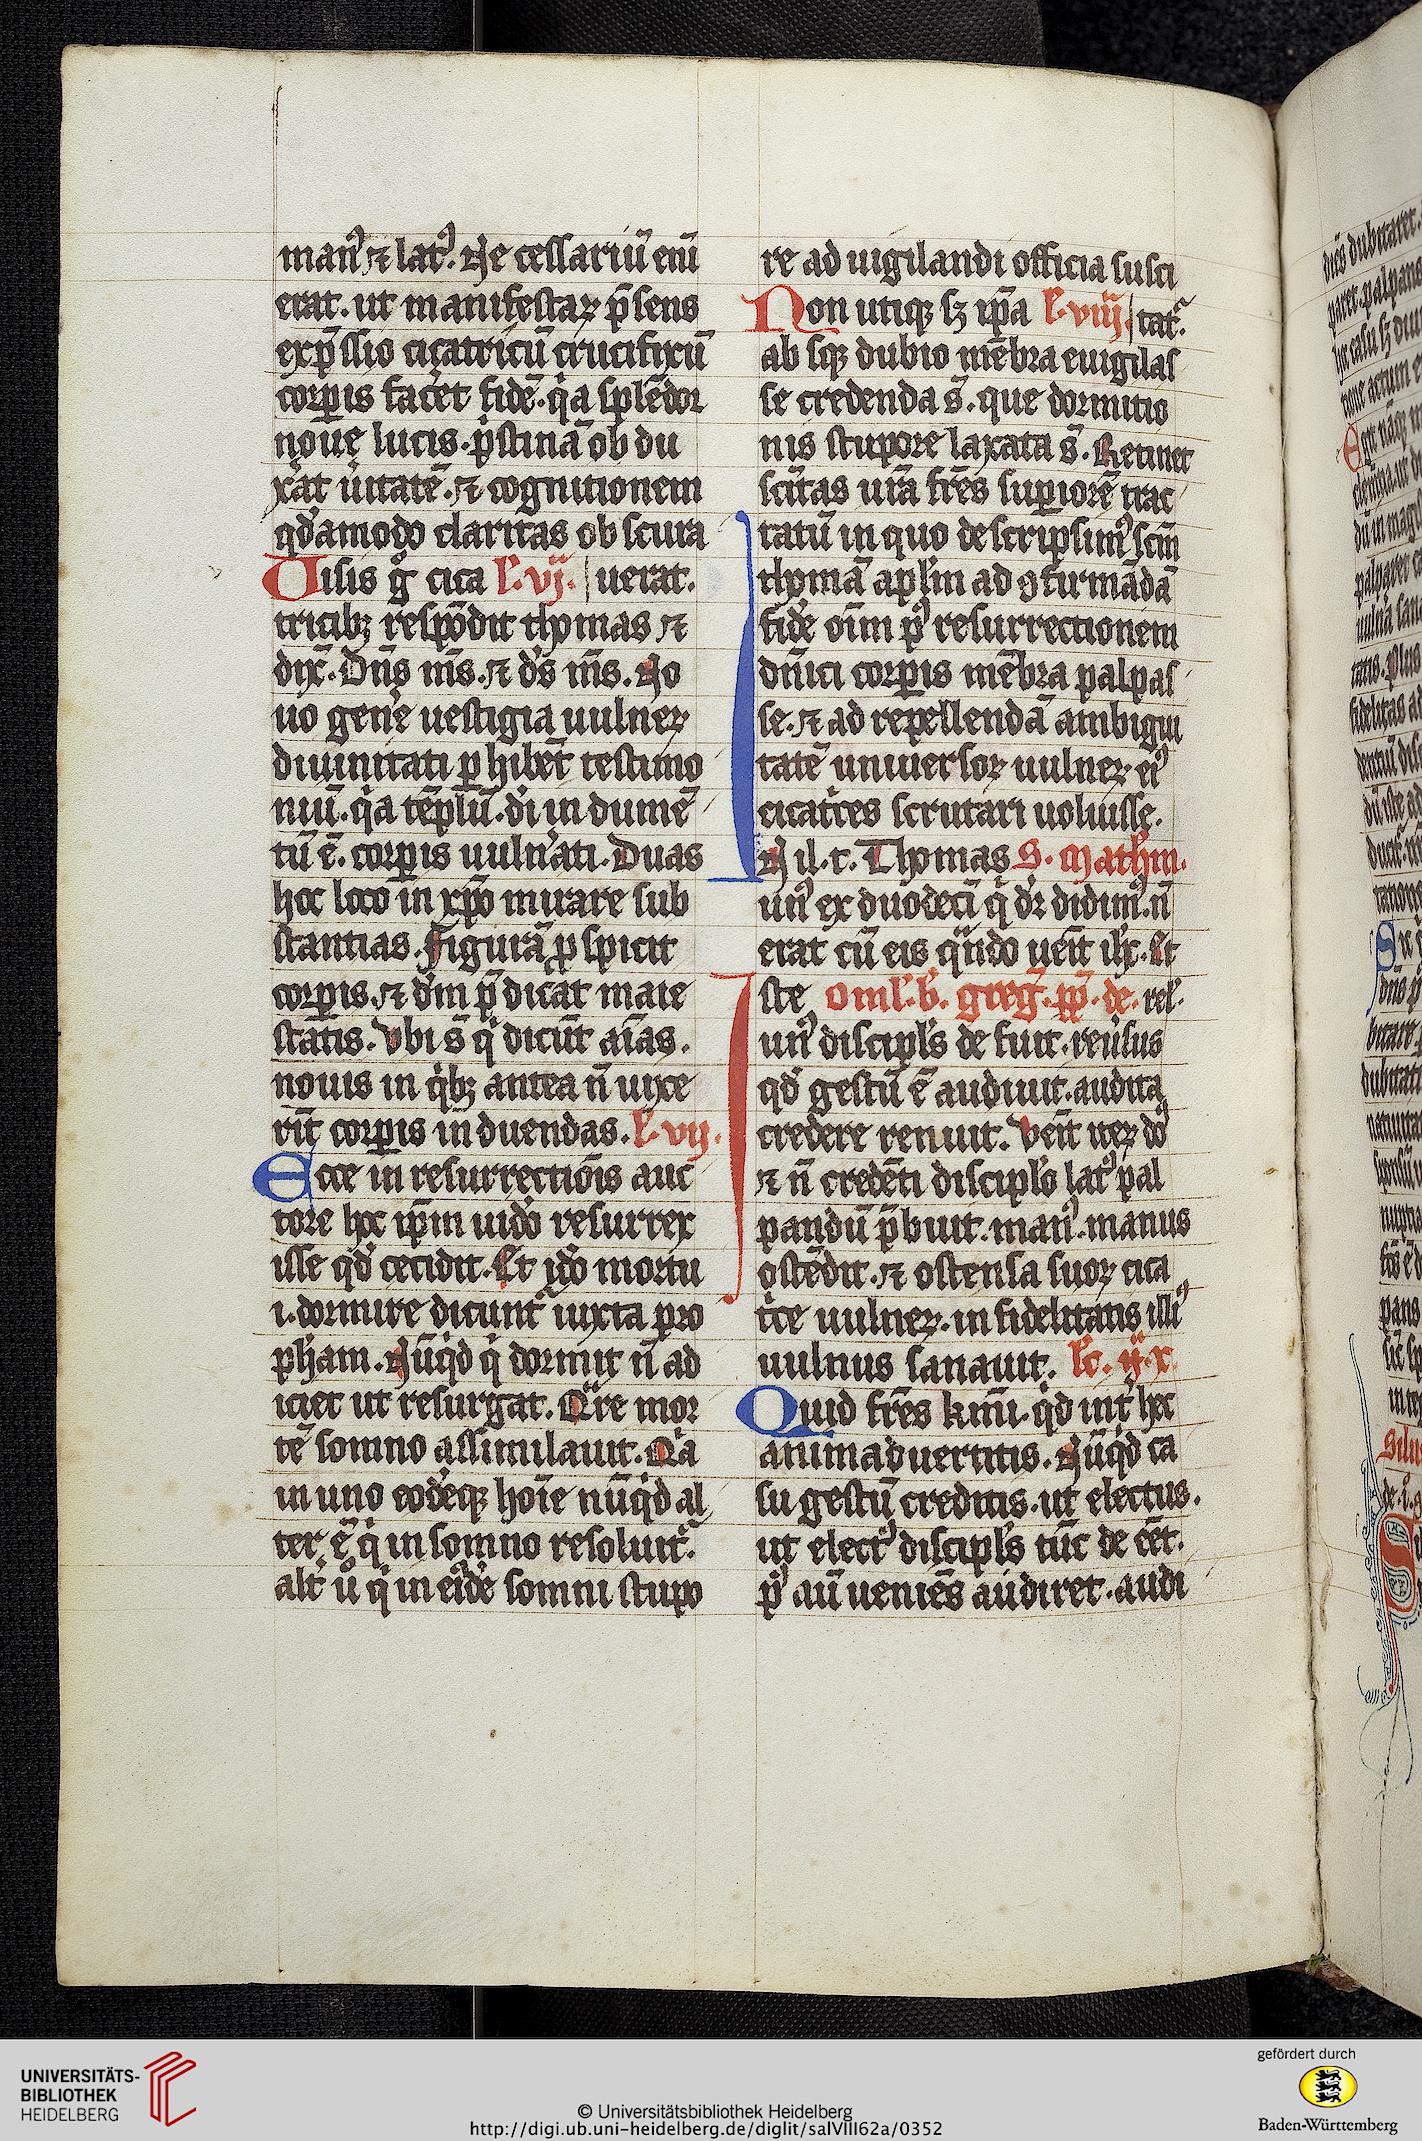 manꝰ ⁊ latꝰ. Ne cessariū enī
erat. ut manifestaꝝ p̄sens
exp̄ssio cicatricū crucifixū
corꝑis facet fidē. q̇a splēdor
noue lucis. p̍stinā ob du
xat uitatē. ⁊ cognitionem
qd̓amodo claritas ob scura
Uisis g̊ cica l̓. vj. uerat.
tricibꝫ respōdit thomas ⁊
dix̄. Dn̄s m̄s. ⁊ d̓s m̄s. No
uo gen̓e uestigia uulneꝝ
diuinitati ꝑ hibet̄ testimo
niū. q̇a tēplū. d̓i in dumē
tū ē. corꝑis uuln̓ati. Duas
hoc loco in xp̄o mirare sub
stantias. Figurā ꝓ spicit
corꝑis. ⁊ d̓m p̄ dicat maie
statis. Vbi s̄ q̇ dicūt aīas.
nouis in q̇bꝫ antea n̄ uixe
rīt corꝑis in duendas. l̓. vij.
Ecce in resurrectiōis auc
tore hoc ip̄m uido resurrex
isse qd̓ cecidit. Et id̓o mortu
i. dormire dicunt̄ iuxta pro
pham. Nūq̇d q̇ dormit n̄ ad
iciet ut resurgat. Qͣre mor
tē somno assimilauit. Qͥa
in uno eodēqꝫ hoīe nūq̇d al
ter ē q̇ in somno resoluit̄.
alt̓ ū q̇ in eīde somni stupo
re ad uigilandi officia susci
Non utiqꝫ sꝫ ip̄a l̓. viij. tat̄.
ab sqꝫ dubio mēbra euigilas
se credenda s̄. que dormitio
nis stupore laxata s̄. Retinet
sc̄itas ur̄a fr̄es suꝑiorē trac
tatū in quo descripsimꝰ sc̄m
thomā apl̓m ad ꝯfirmādā
fidē oīm pꝰ resurrectionem
dn̄ici corꝑis mēbra palpas
se. ⁊ ad repellendā ambigui
tatē uniuersoꝝ uulneꝝ eiꝰ
cicat̓ces scrutari uoluisse.
In il. t. Thomas S. Mathm̄.
unꝰ ex duodecī q̇ dr̄ didimꝰ. n̄
erat cū eis qn̄do uēit ih̄c. Et
ste Oml̓. b̓. greg̓. pp̄. de. rel̓.
unꝰ discipl̓s de fuit. reūsus
qd̓ gestū ē audiuit. audita
credere renuit. Vēit iteꝝ do
⁊ n̄ credēti discipl̓o latꝰ pal
pandū p̄buit. manꝰ. manus
ostēdit. ⁊ ostensa suoꝝ cica
t̓ce uulneꝝ. in fidelitatis illiꝰ
uulnus sanauit. lc̄. ij. x.
Quid fr̄es kmī. q̇d int̓ hec
animaduertitis. Nūq̇d ca
su gestū creditis. ut electus.
ut electꝰ discipl̓s tūc de cēt.
pꝰ aū ueniēs audiret. audi
UNIVERSITÄTS-
BIBLIOTHEK
HEIDELBERG
© Universitätsbibliothek Heidelberg
http://digi.ub.uni-heidelberg.de/diglit/salVIII62a/0352
gefördert durch
Baden-Württemberg